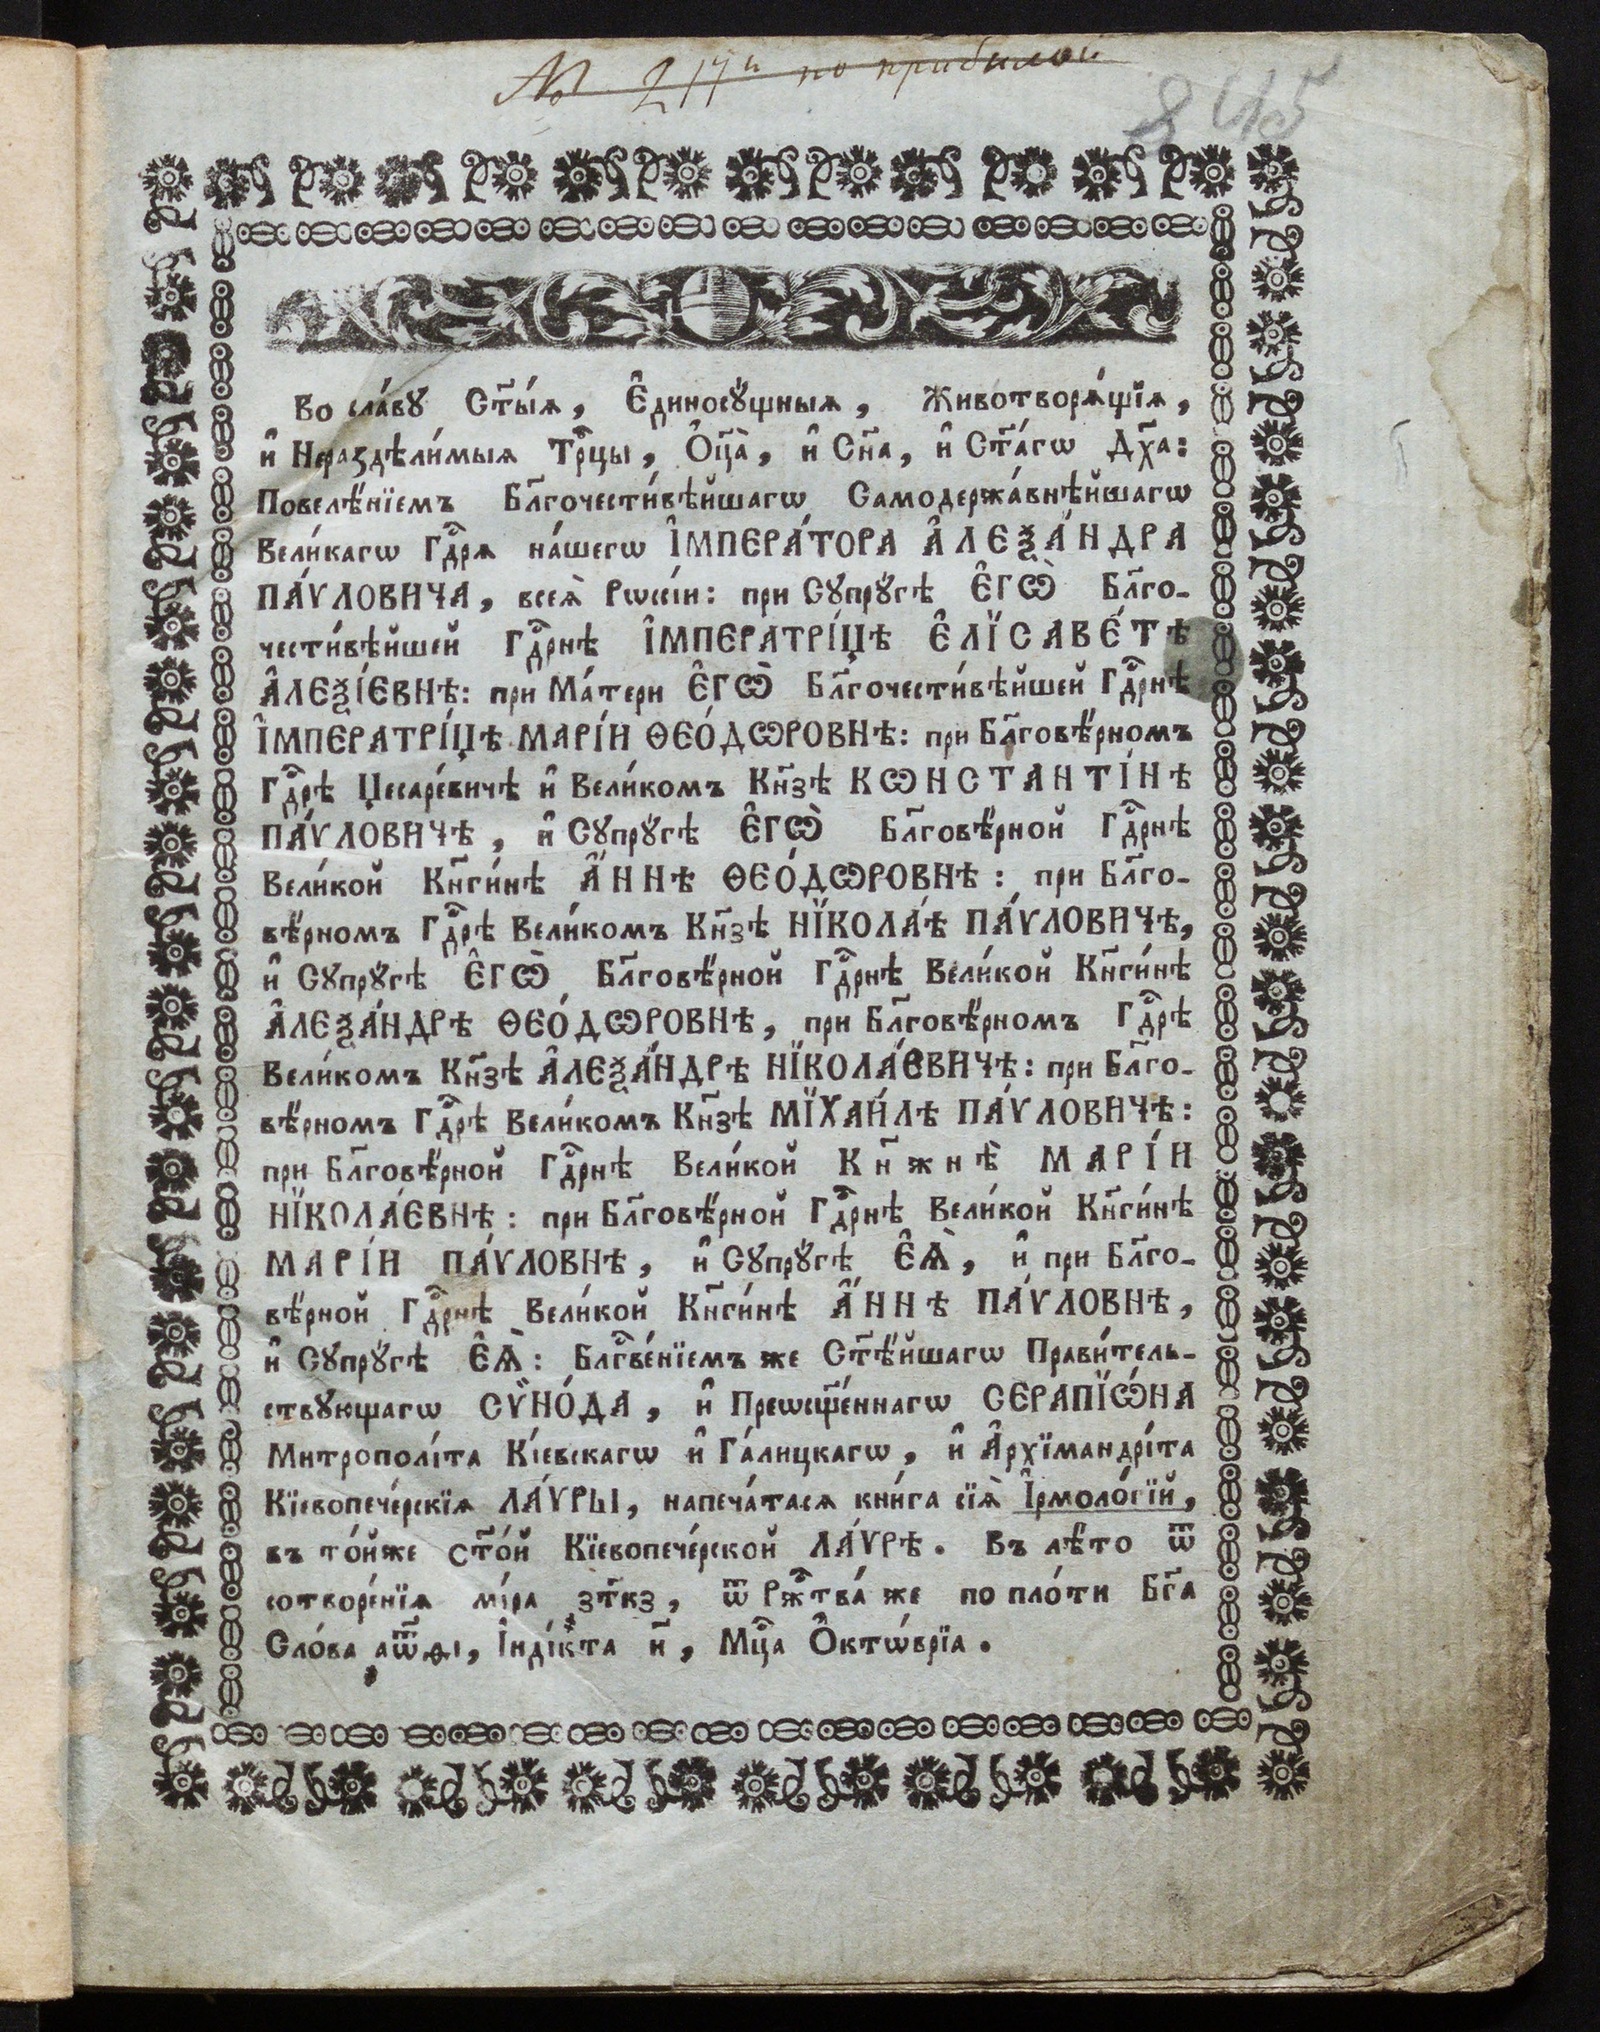 № 217й по прибылой
845
Во сла́вꙋ Ст҃ы́ѧ, Є҆диносꙋ́щныѧ, Животворѧ́щїѧ,
и҆ Нераздѣли́мыѧ Трⷪ҇цы, Ѻ҆ц҃а̀, и҆ Сн҃а, и҆ Ст҃а́гѡ Дх҃а:
Повелѣ́нїемъ Бл҃гочести́вѣйшагѡ Самодержа́внѣйшагѡ
Вели́кагѡ Гдⷭ҇рѧ на́шегѡ І҆МПЕРА́ТОРА А҆ЛЕѮА́НДРА
ПА́ѴЛОВИЧА, всеѧ̀ Рѡссі́и: при Сꙋпрꙋ́гѣ Є҆ГѠ̀ Бл҃го-
чести́вѣйшей Гдⷭ҇рнѣ І҆МПЕРАТРІ́ЦѢ Є҆ЛЇСАВЕ́ТѢ
А҆ЛЕѮІ́ЕВНѢ: при Ма́тери Є҆ГѠ̀ Бл҃гочести́вѣйшей Гдⷭ҇рнѣ
І҆МПЕРАТРІ́ЦѢ МАРІ́И ѲЕО́ДѠРОВНѢ: при Бл҃говѣ́рномъ
Гдⷭ҇рѣ Цесаре́вичѣ и҆ Вели́комъ Кн҃зѣ КѠНСТАНТІ́НѢ
ПА́ѴЛОВИЧѢ, и҆ Сꙋпрꙋ́гѣ Є҆ГѠ̀ Бл҃говѣ́рной Гдⷭ҇рнѣ
Вели́кой Кн҃ги́нѣ А҆́ННѢ ѲЕО́ДѠРОВНѢ: при Бл҃го-
вѣ́рномъ Гдⷭ҇рѣ Вели́комъ Кн҃зѣ НЇКОЛА́Ѣ ПА́ѴЛОВИЧѢ,
и҆ Сꙋпрꙋ́гѣ Є҆ГѠ̀ Бл҃говѣ́рной Гдⷭ҇рнѣ Вели́кой Кн҃ги́нѣ
А҆ЛЕѮА́НДРѢ ѲЕО́ДѠРОВНѢ, при Бл҃говѣ́рномъ Гдⷭ҇рѣ
Вели́комъ Кн҃зѣ А҆ЛЕѮА́НДРѢ НЇКОЛА́ЕВИЧѢ: при Бл҃го-
вѣ́рномъ Гдⷭ҇рѣ Вели́комъ Кн҃зѣ МЇХАИ́ЛѢ ПА́ѴЛОВИЧѢ:
при Бл҃говѣ́рной Гдⷭ҇рнѣ Вели́кой Кн҃жнѣ̀ МАРІ́И
НЇКОЛА́ЕВНѢ: при Бл҃говѣ́рной Гдⷭ҇рнѣ Вели́кой Кн҃ги́нѣ
МАРІ́И ПА́ѴЛОВНѢ, и҆ Сꙋпрꙋ́гѣ Є҆Ѧ̀, и҆ при Бл҃го-
вѣ́рной Гдⷭ҇рнѣ Вели́кой Кн҃ги́нѣ А҆́ННѢ ПА́ѴЛОВНѢ,
и҆ Сꙋпрꙋ́гѣ Є҆Ѧ̀: Блⷭ҇гве́нїемъ же Ст҃ѣ́йшагѡ Прави́тель-
ствꙋющагѡ СѴНО́ДА, и҆ Преѡсщ҃е́ннагѡ СЕРАПЇѠ́НА
Митрополі́та Кі́евскагѡ и҆ Га́лицкагѡ, и҆ А҆рхїмандрі́та
Кїевопече́рскїѧ ЛА́ѴРЫ, напеча́тасѧ кни́га сїѧ̀ І҆рмоло́гїй,
въ то́йже ст҃о́й Кїевопече́рской ЛА́ѴРѢ. Въ лѣ́то ѿ
сотворе́нїѧ мі́ра ҂зт҃кз, ѿ Ржⷭ҇тва́ же по пло́ти Бг҃а
Сло́ва ҂аѿ҃ѳі, І҆нді́кта и҃, Мцⷭ҇а Ѻ҆ктѡ́врїа.